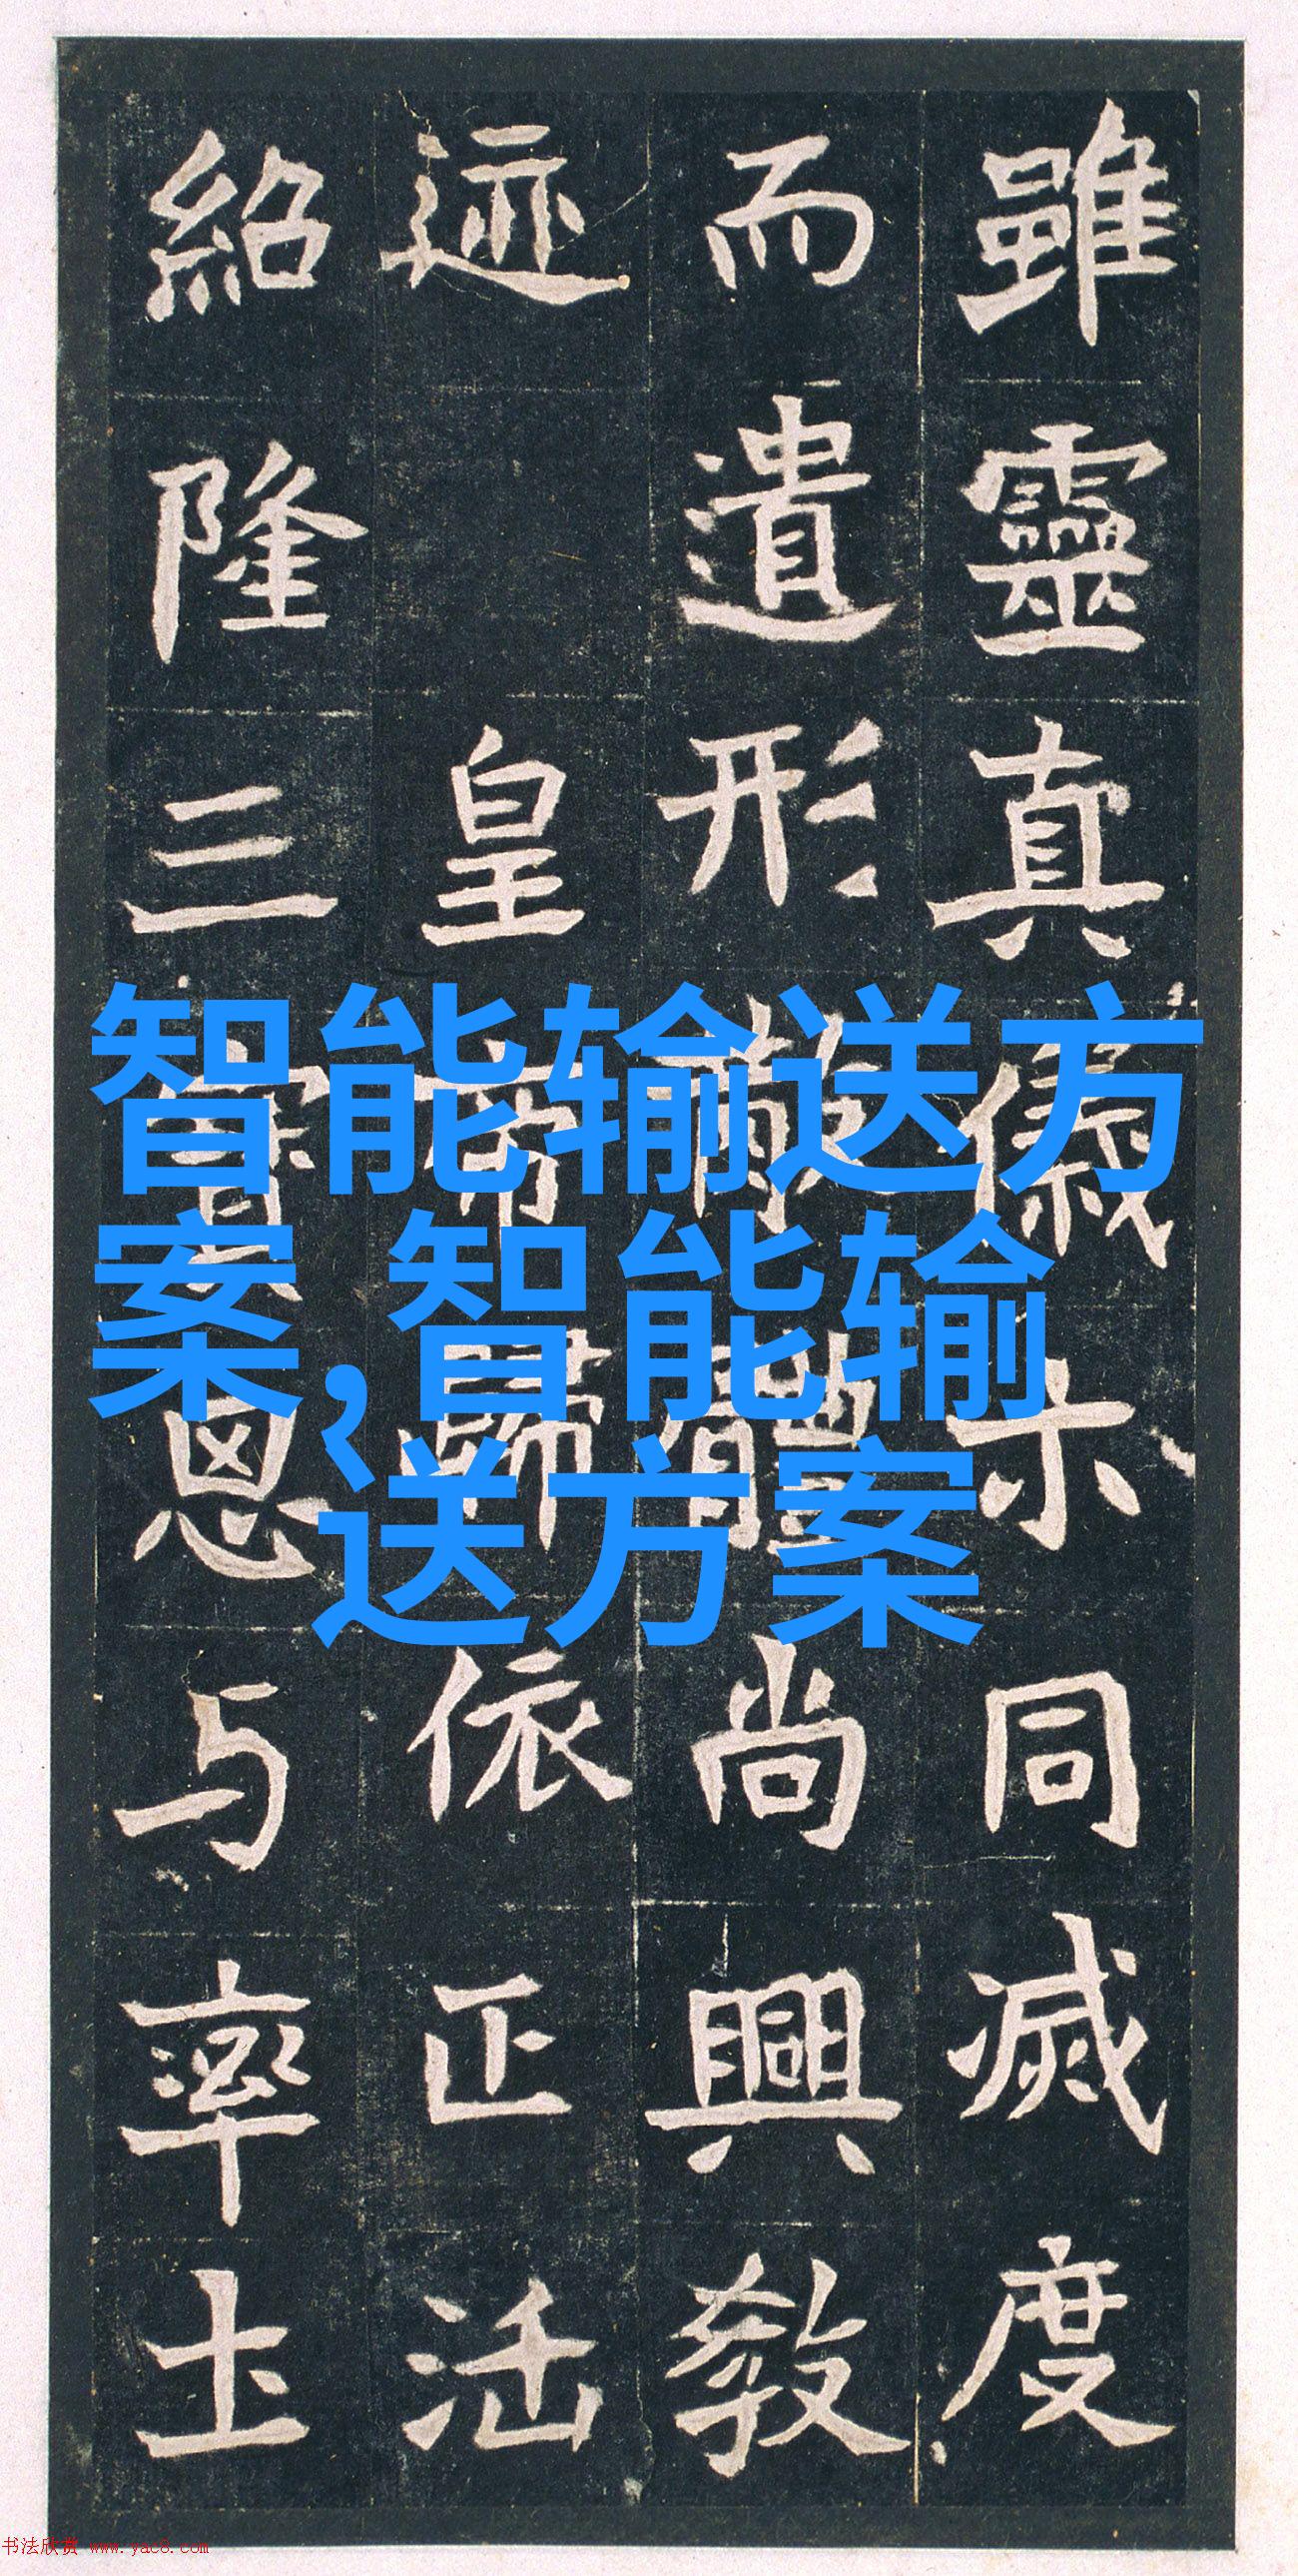 雖靈真儀示同滅度
而遺形體尚興教
迹皇帝歸依正法
紹隆三寶思与率土
智能输送方
案,智能输
送方案
书法欣赏 www.yac8.com